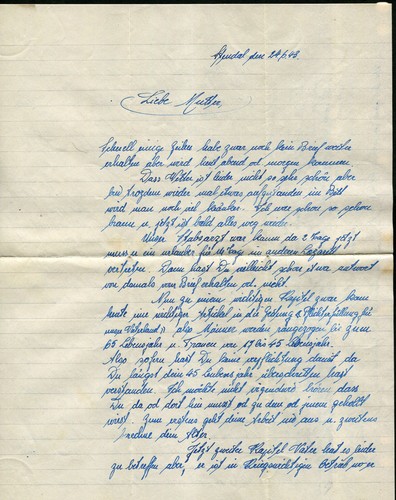 Stendal den 24.6.43.
Liebe Mutter,
Schnell einige Zeilen habe zwar noch kein Brief weiter
erhalten aber wird heut abend od morgen kommen.
Dass Wetter ist leider nicht so sehr schön aber
bin trozdem wieder mal etwas aufgestanden im Bett
wird man noch viel
braun u. jetzt ist bald alles weg wieder.
Unser Stabsarzt war kaum da 2 Tage jetzt
muss er ein urlauber für 14 Tag in anderen Lazarett
vertreten. Dann hast Du vielleicht schon etwas antwort
von damals vom Brief erhalten od. nicht.
Nun zu mein wichtigen Kapitel zwar kam
heute eine wichtiger Artikel in die Zeitung &
unser Vaterland) also Männer werden rangezogen bis zum
65 Lebensjahr u. Frauen von 17 bis 45 Lebensjahr.
Also sofern hast Du keine verpflichtung damit da
Du längst dein 45 Lebensjahr überschritten hast
verstanden. Ich möchte nicht irgendwie hören dass
Du da od dort hin musst od zu dem od jenem geholt
wirst. Zum erstens geht deine Arbeit nie aus u. zweitens
dein Alter.
Jetzt zweite Kapitel Vater hat es leider
zu betreffen aber er ist in kriegswichtigen Betrieb wo er